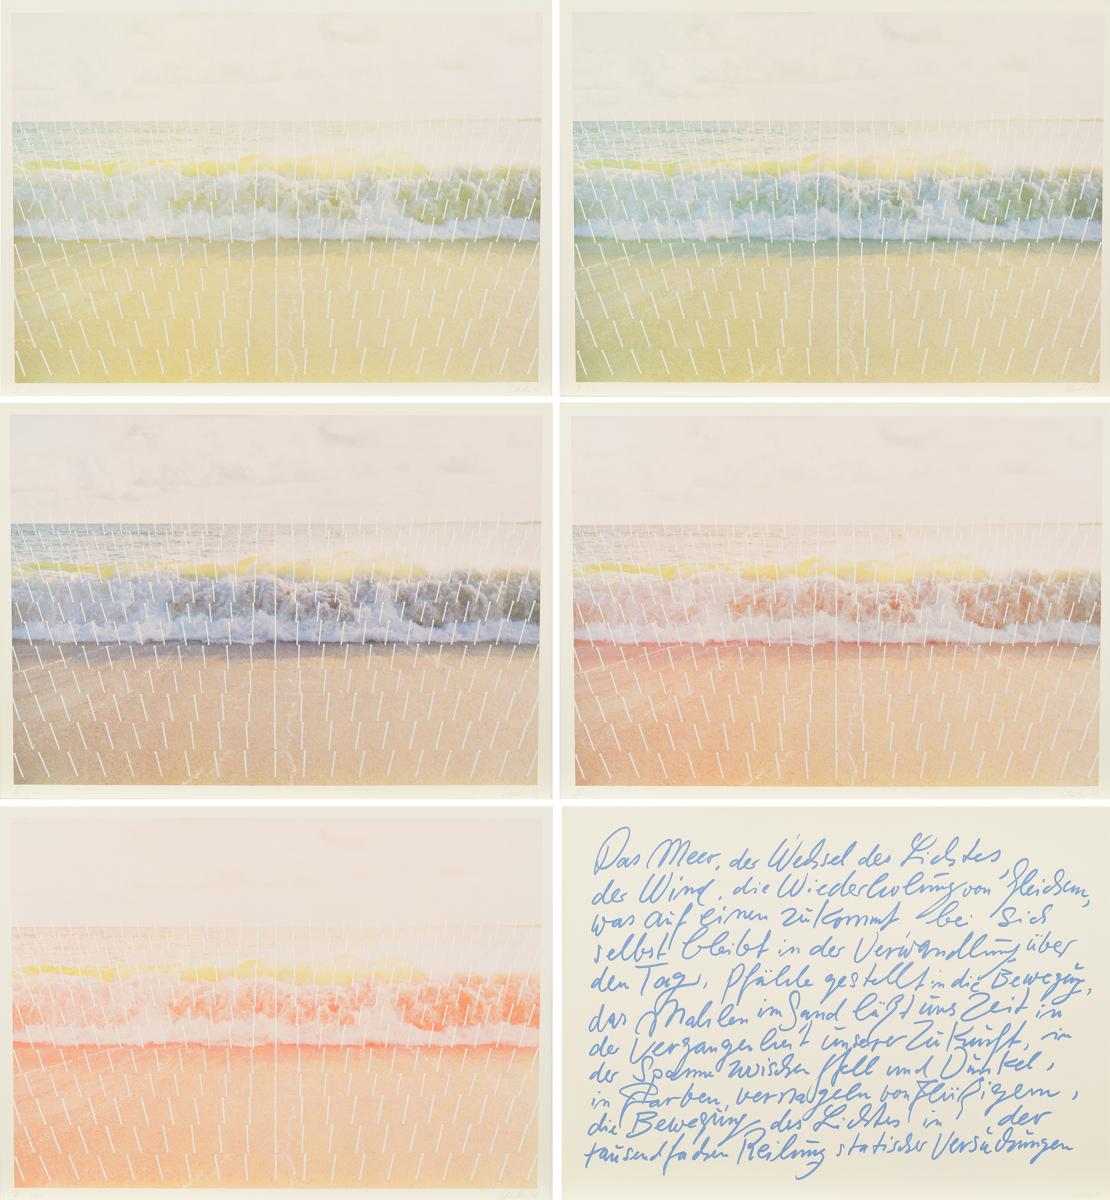 Das Meer, der Wechsel des Lichtes,
der Wind, die Wiederholung von Gleichem,
was auf einen zukommt bei sich
selbst bleibt in der Verwandlung über
den Tag, Pfähle gestellt in die Bewegung,
das Mahlen im Sand läßt uns Zeit in
der Vergangenheit unserer Zukunft, in
der Spanne zwischen Hell und Dunkel,
in Farben, vernageln von Flüßigem,
die Bewegung des Lichtes in der
tausendfachen Reihung statischer Versuchungen